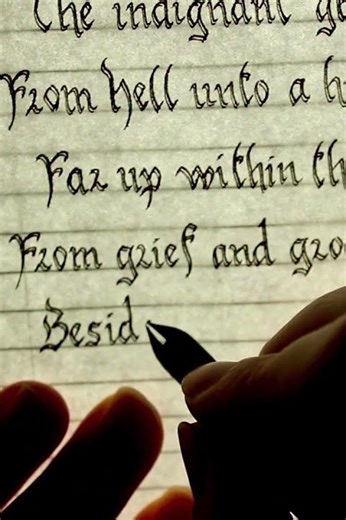 The indignant g
From hell unto a h
Far up within th
From grief and gro
Besid